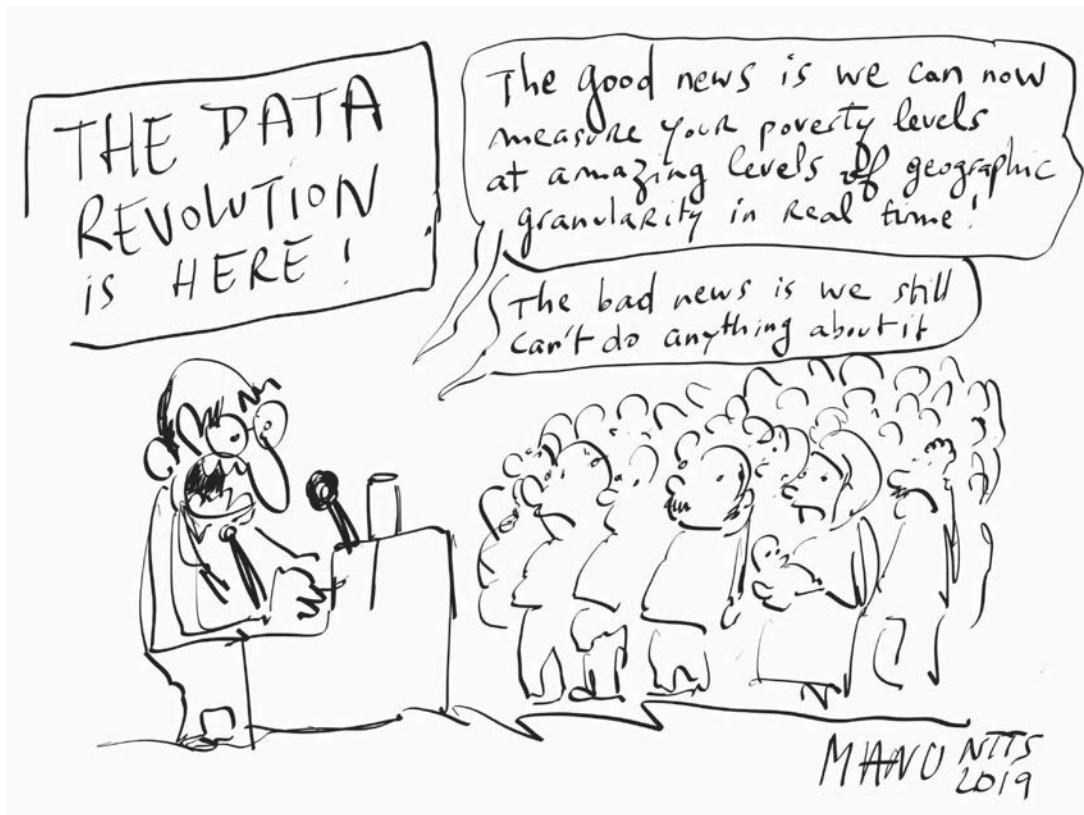 THE DATA
REVOLUTION
is HERE!
The good news is we can now
measure your poverty levels
at amazing levels of geographic
granularity in real time!
The bad news is we still
can't do anything about it
MANU NTTS
2019